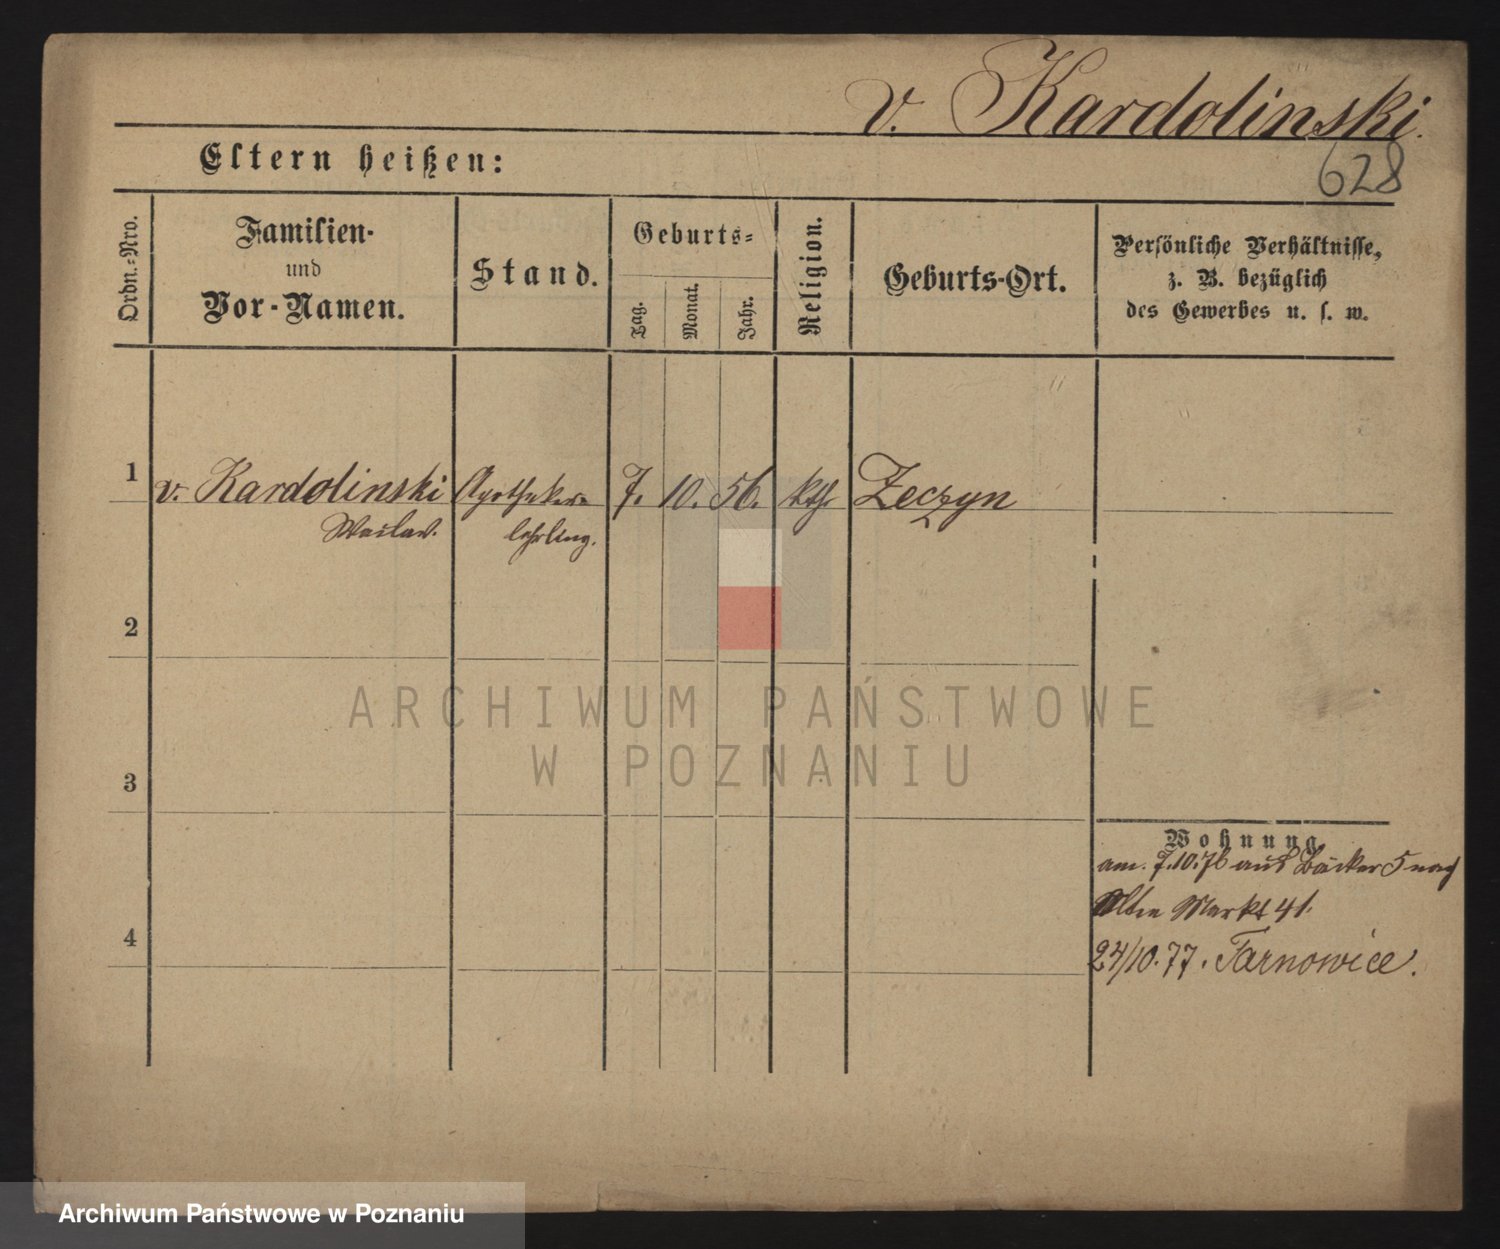 v. Kardolinski.
628
Eltern heißen:
Ordn.-Nro.
Familien-
und
Vor-Namen.
Stand.
Geburts-
Tag.
Monat.
Jahr.
Religion.
Geburts-Ort.
Persönliche Verhältnisse,
z. B. bezüglich
des Gewerbes u. s. w.
1 v. Kardolinski Apotheker- 7. 10. 56. kth Zeczyn
Waclaw. lehrling.
2
3
4
Wohnung
am. 7.10.76 aus Bäcker 5 nach
Alte Markt 41.
24/10.77. Tarnowice.
ARCHIWUM PAŃSTWOWE
W POZNANIU
Archiwum Państwowe w Poznaniu